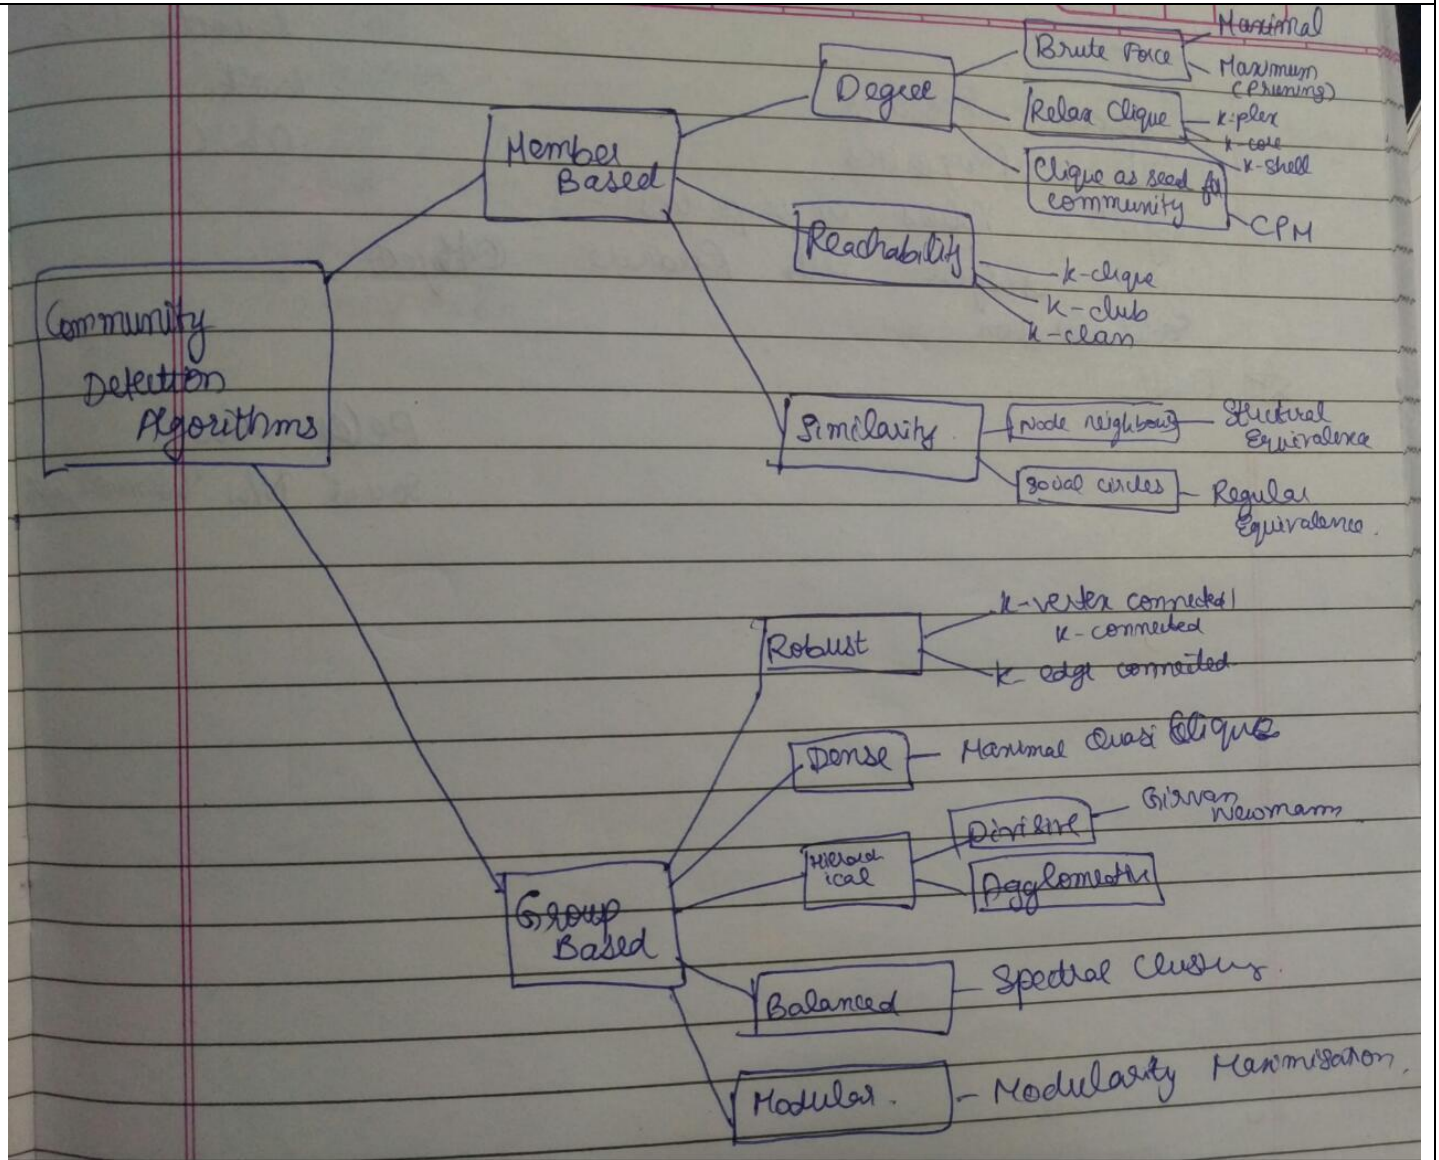 Community
Detection
Algorithms
Member
Based
Degree
Brute Force
Maximal
Maximum
(Pruning)
Relax Clique
k-plex
k-core
k-shell
Clique as seed for
community
CPM
Reachability
k-clique
k-club
k-clan
Similarity
Node neighbours
Structural
Equivalence
Social circles
Regular
Equivalence.
Group
Based
Robust
k-vertex connected/
k-connected
k-edge connected
Dense
Maximal Quasi Clique
Hierarch
ical
Divisive
Girvan
Newmann
Agglomerative
Balanced
Spectral
Modular.
Modularity Maximisation.